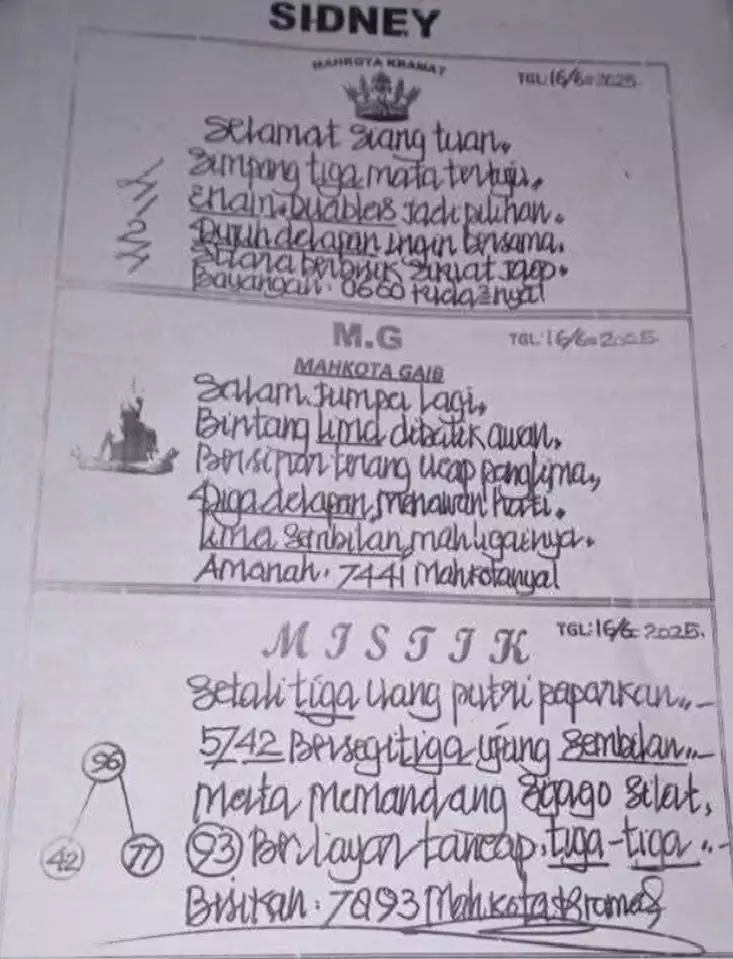 SIDNEY
MAHKOTA KRAMAT
TGL: 16/6=2025.
Selamat siang tuan.
Simpang tiga mata tertuju.
Enam. jadi pilihan.
delapan ingin bersama.
Bayangan: 0660
M.G
TGL: 16/6=2025.
MAHKOTA GAIB
Salam jumpa lagi.
Bintang lima dibalik awan.
terang ucap panglima,
Tiga delapan, menawan hati.
Lima sembilan, mahligainya.
Amanah: 7441 Mahkotanya!
MISTIK
TGL: 16/6= 2025.
Setali tiga uang putri paparkan..
5742 Bersegitiga ujung sembilan..
Mata memandang silat,
96
42
77
93 Berlayar tancap, tiga-tiga..
Bisikan: 7893 Mahkota Kramat